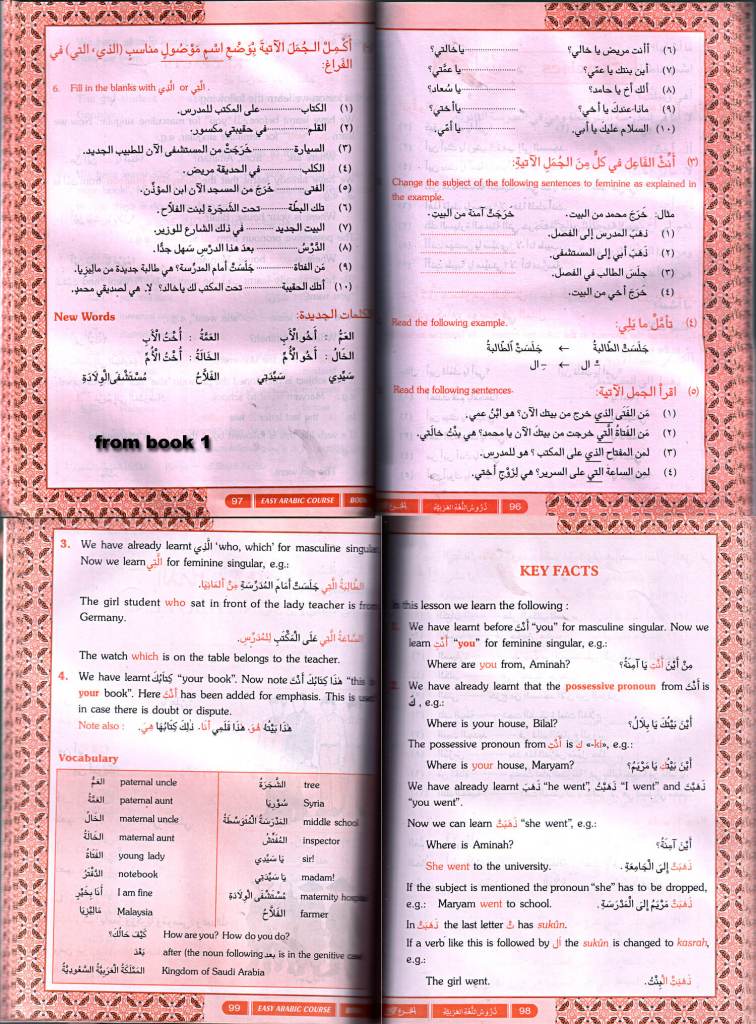 (٦) أأنت مريض يا خالي؟ .................... يا خالتي؟
(٧) أين بنتك يا عمّي؟ .................... يا عمّتي؟
(٨) ألك أخ يا حامد؟ .................... يا سُعاد؟
(٩) ماذا عندكَ يا أخي؟ .................... يا أختي؟
(١٠) السلام عليكَ يا أبي. .................... يا أمّي.
(٣) أَنِّثِ الفَاعِلَ في كلٍّ مِنَ الجُمَلِ الآتيةِ:
Change the subject of the following sentences to feminine as explained in
the example.
مثال: خَرَجَ محمد من البيت. خَرَجَتْ آمنة من البيت.
(١) ذهَبَ المدرس إلى الفصل. ....................
(٢) ذَهَبَ أبي إلى المستشفى. ....................
(٣) جلَسَ الطالب في الفصل. ....................
(٤) خَرَجَ أخي من البيت. ....................
(٤) تأمَّلْ ما يَلِي:
Read the following example.
جَلَسَتْ الطَّالبةُ ← جَلَسَتِ الطَّالبةُ
ـْ ال ← ـِ ال
(٥) اقرأ الجمل الآتية:
Read the following sentences-
(١) مَن الفَتَى الذي خرج من بيتك الآن؟ هو ابْنُ عمي.
(٢) مَن الفتاةُ الَّتي خرجت من بيتكَ الآن يا محمد؟ هي بنْتُ خالَتي.
(٣) لمن المفتاح الذي على المكتب؟ هو للمدرس.
(٤) لمن الساعة التي على السرير؟ هي لِزَوْجِ أختي.
96 دُرُوسُ اللُّغَةِ العَرَبِيَّةِ
أَكْمِلْ الجُمَلَ الآتيةَ بِوَضْعِ اسْمٍ مَوْصُولٍ مناسبٍ (الذي، التي) في
الفَراغ:
6. Fill in the blanks with الَّذِي or الَّتِي.
(١) الكتاب .......... على المكتب للمدرس.
(٢) القلم .......... في حقيبتي مكسور.
(٣) السيارة .......... خَرَجَتْ من المستشفى الآن للطبيب الجديد.
(٤) الكلب .......... في الحديقة مريض.
(٥) الفتى .......... خَرَجَ من المسجد الآن ابن المؤذّن.
(٦) تلك البطّة .......... تحت الشَّجَرة لِبنت الفلاّح.
(٧) البيت الجديد .......... في ذلك الشارع للوزير.
(٨) الدَّرْسُ .......... بعدَ هذا الدرسِ سَهل جدًّا.
(٩) مَن الفتاة .......... جَلَسَتْ أمامَ المدرّسة؟ هي طالبة جديدة من ماليزيا.
(١٠) أتلك الحقيبة .......... تحت المكتب لك يا خالد؟ لا. هي لصديقي محمدٍ.
New Words الكلمات الجديدة:
العَمُّ : أَخُو الْأَبِ العَمَّةُ : أُخْتُ الْأَبِ
الخَالُ : أَخُو الْأُمِّ الخَالَةُ : أُخْتُ الْأُمِّ
سَيِّدِي سَيِّدَتِي الفَلَّاحُ مُسْتَشْفَى الوِلَادَةِ
from book 1
97 EASY ARABIC COURSE BOOK
KEY FACTS
In this lesson we learn the following :
We have learnt before أَنْتَ “you” for masculine singular. Now we
learn أَنْتِ “you” for feminine singular, e.g.:
Where are you from, Aminah? مِنْ أَيْنَ أَنْتِ يَا آمِنَةُ؟
We have already learnt that the possessive pronoun from أَنْتَ is
كَ, e.g.:
Where is your house, Bilal? أَيْنَ بَيْتُكَ يَا بِلَالُ؟
The possessive pronoun from أَنْتِ is كِ «-ki», e.g.:
Where is your house, Maryam? أَيْنَ بَيْتُكِ يَا مَرْيَمُ؟
We have already learnt ذَهَبَ “he went”, ذَهَبْتُ “I went” and ذَهَبْتَ
“you went”.
Now we can learn ذَهَبَتْ “she went”, e.g.:
Where is Aminah? أَيْنَ آمِنَةُ؟
She went to the university. ذَهَبَتْ إِلَى الْجَامِعَةِ.
If the subject is mentioned the pronoun “she” has to be dropped,
e.g.: Maryam went to school. ذَهَبَتْ مَرْيَمُ إِلَى الْمَدْرَسَةِ.
In ذَهَبَتْ the last letter تْ has sukûn.
If a verb like this is followed by اَلْ the sukûn is changed to kasrah,
e.g.:
The girl went. ذَهَبَتِ الْبِنْتُ.
98 دُرُوسُ اللُّغَةِ العَرَبِيَّةِ
3. We have already learnt الَّذِي ‘who, which’ for masculine singular.
Now we learn الَّتِي for feminine singular, e.g.:
الطَّالِبَةُ الَّتِي جَلَسَتْ أَمَامَ المُدَرِّسَةِ مِنْ أَلْمَانِيَا.
The girl student who sat in front of the lady teacher is from
Germany.
السَّاعَةُ الَّتِي عَلَى الْمَكْتَبِ لِلْمُدَرِّسِ.
The watch which is on the table belongs to the teacher.
4. We have learnt كِتَابُكَ “your book”. Now note هَذَا كِتَابُكَ أَنْتَ “this is
your book”. Here أَنْتَ has been added for emphasis. This is used
in case there is doubt or dispute.
Note also : هَذَا بَيْتُهُ هُوَ. هَذَا قَلَمِي أَنَا. ذَلِكَ كِتَابُهَا هِيَ.
Vocabulary
العَمُّ paternal uncle الشَّجَرَةُ tree
العَمَّةُ paternal aunt سُوْرِيَا Syria
الخَالُ maternal uncle المَدْرَسَةُ الْمُتَوَسِّطَةُ middle school
الخَالَةُ maternal aunt المُفَتِّشُ inspector
الفَتَاةُ young lady يَا سَيِّدِي sir!
الدَّفْتَرُ notebook يَا سَيِّدَتِي madam!
أَنَا بِخَيْرٍ I am fine مُسْتَشْفَى الْوِلَادَةِ maternity hospital
مَالِيْزِيَا Malaysia الفَلَّاحُ farmer
كَيْفَ حَالُكَ؟ How are you? How do you do?
بَعْدَ after (the noun following بعد is in the genitive case
المَمْلَكَةُ الْعَرَبِيَّةُ السُّعُودِيَّةُ Kingdom of Saudi Arabia
99 EASY ARABIC COURSE